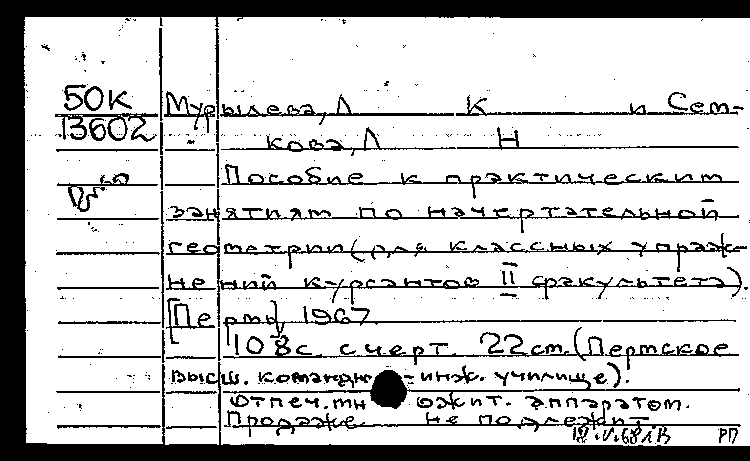 50К Мурылева, Л К и Сем-
13602 кова, Л Н
Пособие к практическим
занятиям по начертательной
геометрии (для классных упраж-
нений курсантов II факультета).
[Пермь], 1967.
108 с. с черт. 22 см. (Пермское
высш. командно-инж. училище).
Отпеч. множит. аппаратом.
Продаже не подлежит.
РП